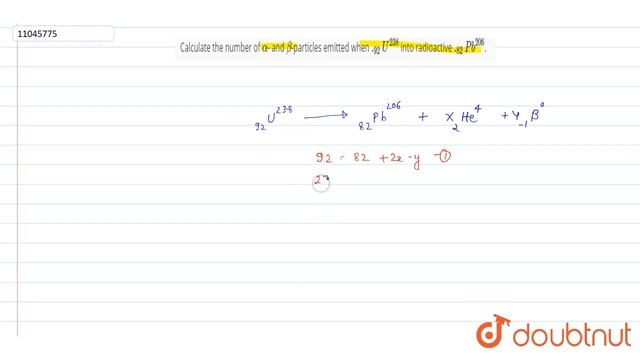 11045775
Calculate the number of α- and β-particles emitted when ₉₂U²³⁸ into radioactive ₈₂Pb²⁰⁶.
₉₂U²³⁸ ⟶ ₈₂Pb²⁰⁶ + X ₂He⁴ + Y ₋₁β⁰
92 = 82 + 2x - y -①
23
doubtnut